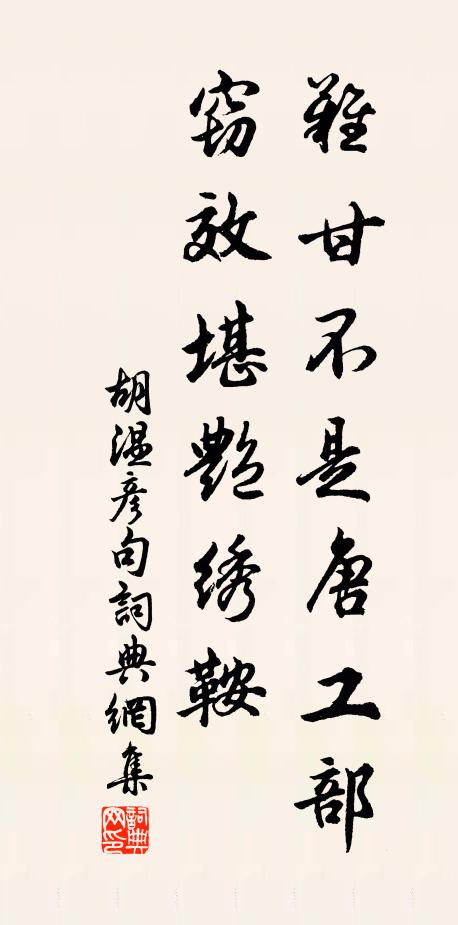 難甘不是唐工部
窃效堪艷绣鞍
胡温彦句詞典網集
詞典网印